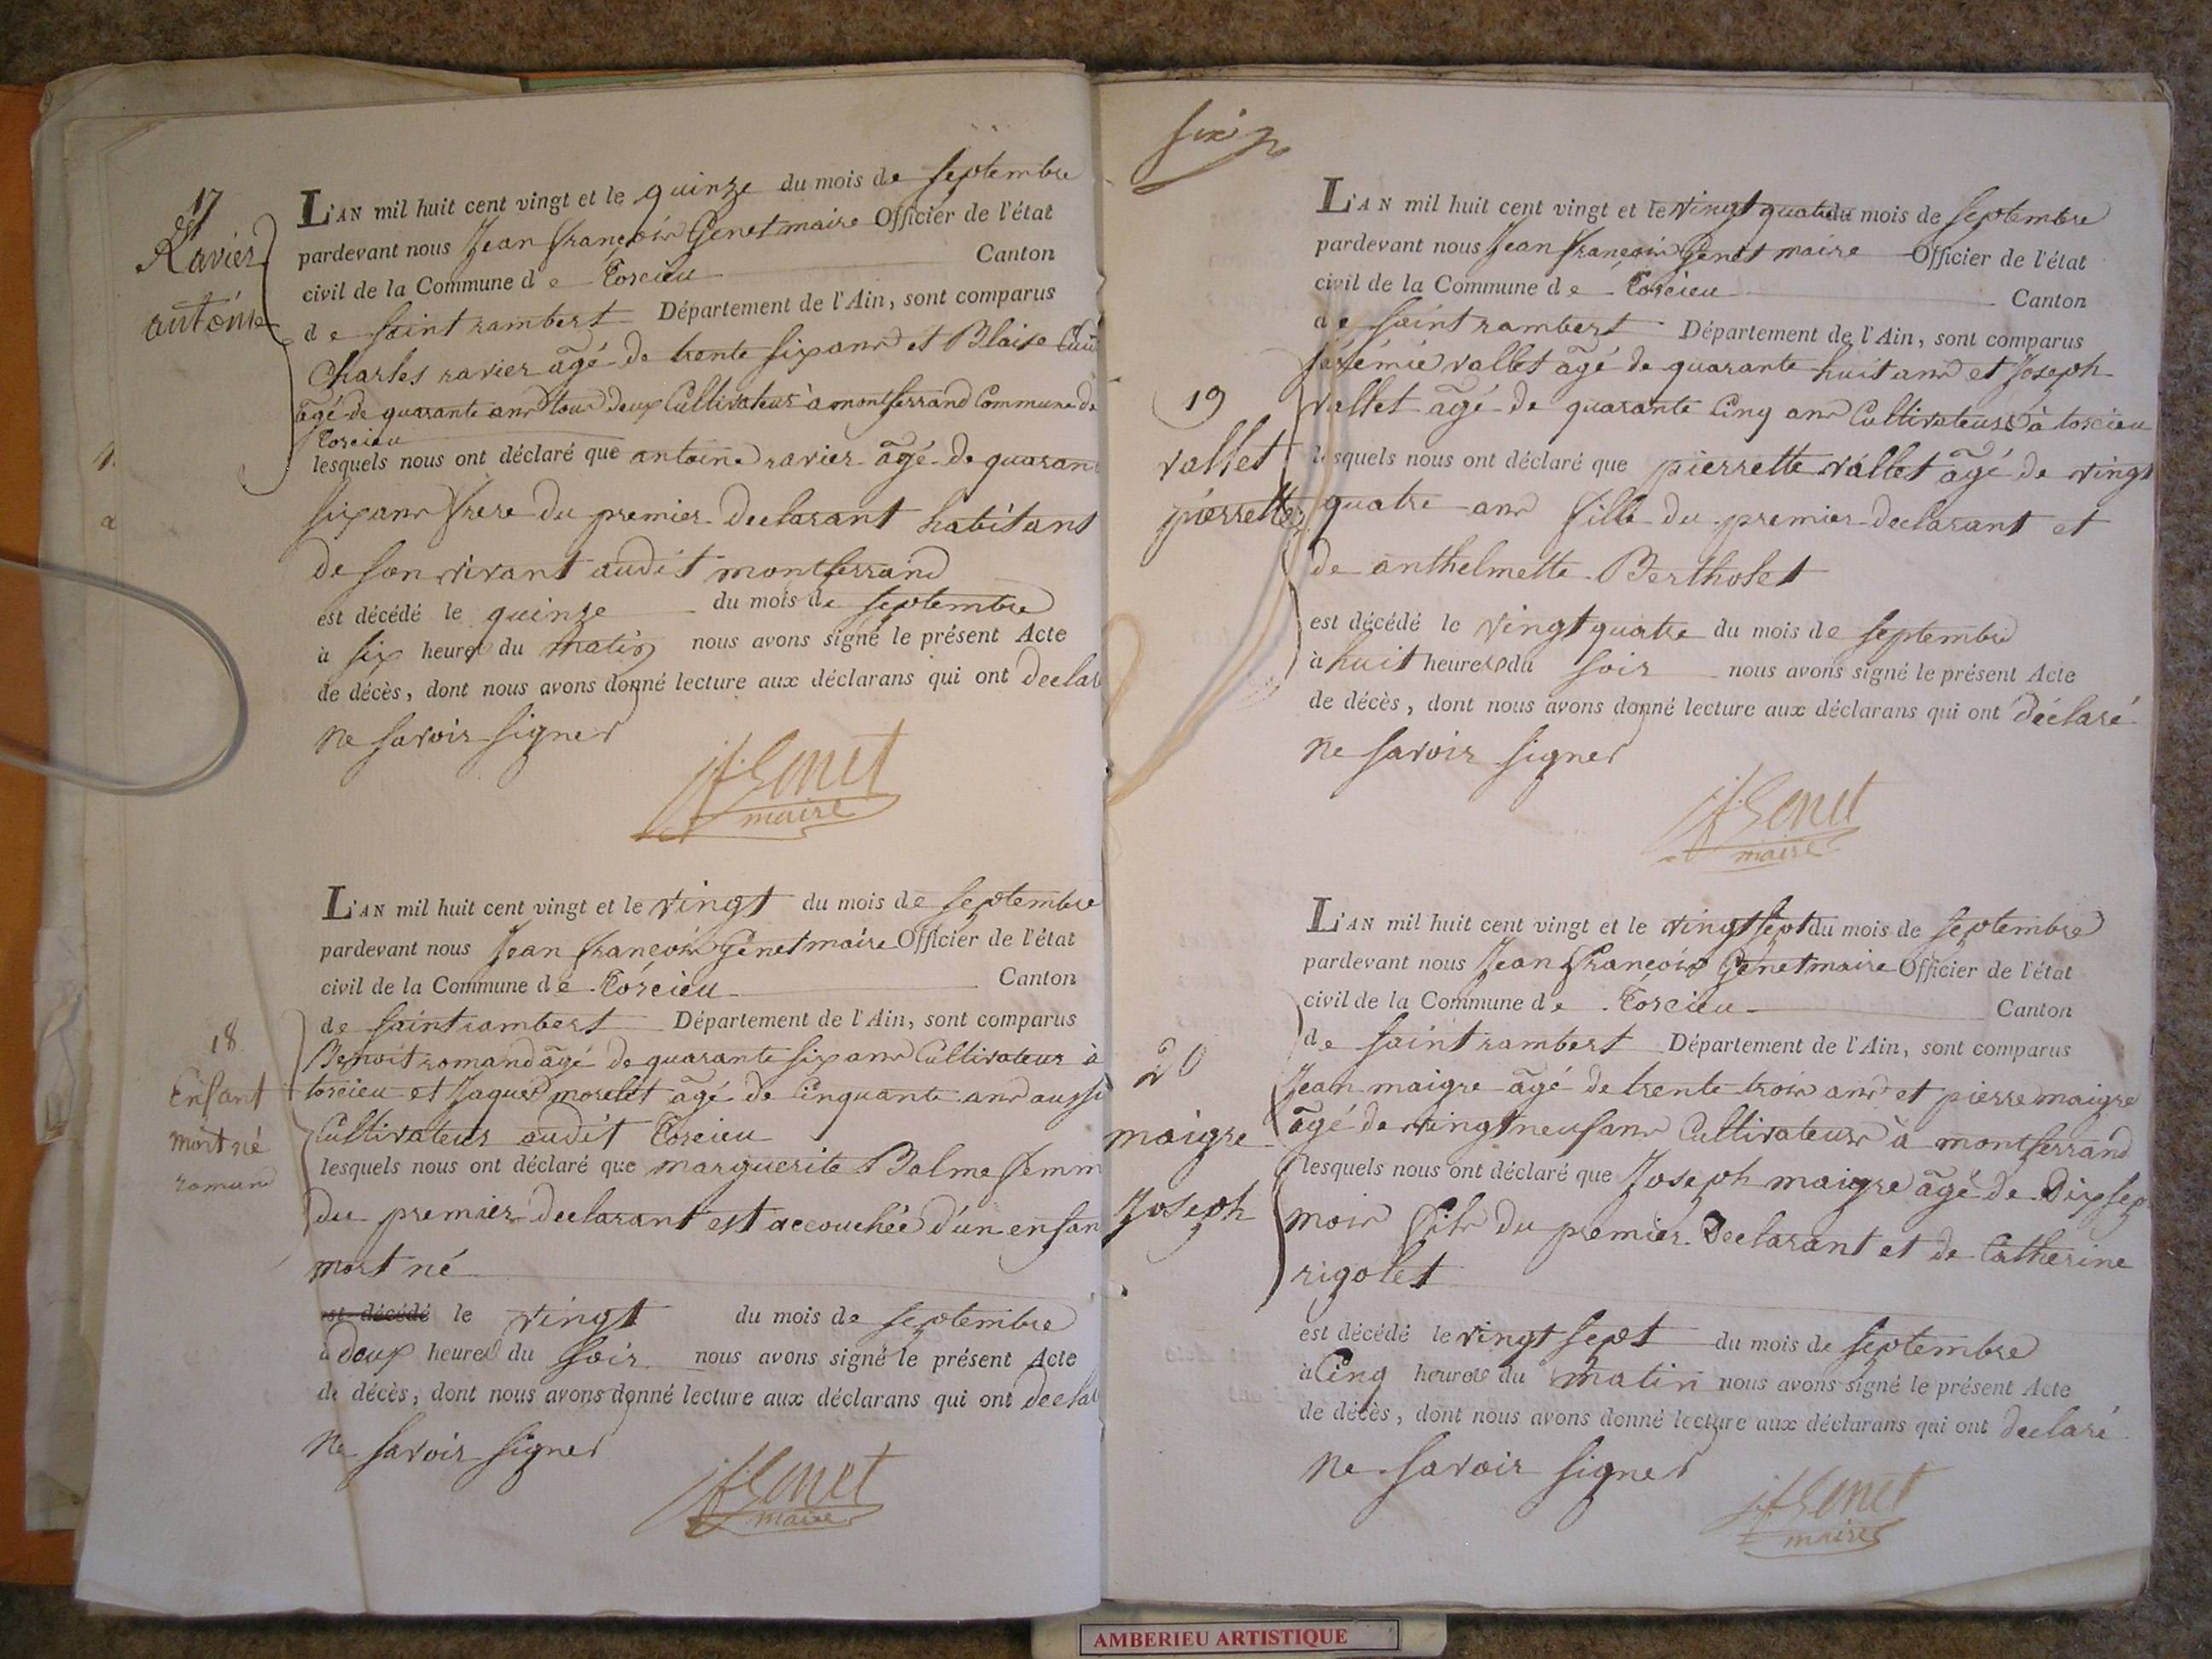 17
Ravier
antoine
L'AN mil huit cent vingt et le quinze du mois de septembre
pardevant nous Jean françois Genet maire Officier de l'état
civil de la Commune de Torcieu Canton
de saint rambert Département de l'Ain, sont comparus
Charles ravier âgé de trente six ans et Blaise
âgé de quarante ans tous deux Cultivateurs à montferrand Commune de
Torcieu
lesquels nous ont déclaré que antoine ravier âgé de quaran
six ans frere du premier declarant habitant
de son vivant audit montferrand
est décédé le quinze du mois de septembre
à six heures du matin nous avons signé le présent Acte
de décès, dont nous avons donné lecture aux déclarans qui ont declar
ne savoir signer
jf Genet
maire
18
Enfant
mort né
romand
L'AN mil huit cent vingt et le vingt du mois de septembre
pardevant nous Jean françois Genet maire Officier de l'état
civil de la Commune de Torcieu Canton
de saint rambert Département de l'Ain, sont comparus
Benoit romand âgé de quarante six ans Cultivateur à
torcieu et Jaques morelet âgé de Cinquante ans aussi
Cultivateur audit Torcieu
lesquels nous ont déclaré que marguerite Balme femm
du premier declarant est accouchée d'un enfan
mort né
est décédé le vingt du mois de septembre
à deux heures du soir nous avons signé le présent Acte
de décès, dont nous avons donné lecture aux déclarans qui ont declar
ne savoir signer
jf Genet
maire
six
19
vallet
pierrette
L'AN mil huit cent vingt et le vingt quatre du mois de septembre
pardevant nous Jean françois Genet maire Officier de l'état
civil de la Commune de Torcieu Canton
de saint rambert Département de l'Ain, sont comparus
jérémie vallet âgé de quarante huit ans et Joseph
vallet âgé de quarante Cinq ans Cultivateurs à torcieu
lesquels nous ont déclaré que pierrette vallet âgé de vingt
quatre ans fille du premier declarant et
de anthelmette Bertholet
est décédé le vingt quatre du mois de septembre
à huit heures du soir nous avons signé le présent Acte
de décès, dont nous avons donné lecture aux déclarans qui ont déclaré
ne savoir signer
jf Genet
maire
20
maigre
Joseph
L'AN mil huit cent vingt et le vingt sept du mois de septembre
pardevant nous Jean françois Genet maire Officier de l'état
civil de la Commune de Torcieu Canton
de saint rambert Département de l'Ain, sont comparus
Jean maigre âgé de trente trois ans et pierre maigre
âgé de vingt neuf ans Cultivateurs à montferrand
lesquels nous ont déclaré que Joseph maigre âgé de Dix sep
mois fils du premier Declarant et de Catherine
rigolet
est décédé le vingt sept du mois de septembre
à Cinq heures du matin nous avons signé le présent Acte
de décès, dont nous avons donné lecture aux déclarans qui ont declaré
ne savoir signer
jf Genet
maire
AMBERIEU ARTISTIQUE